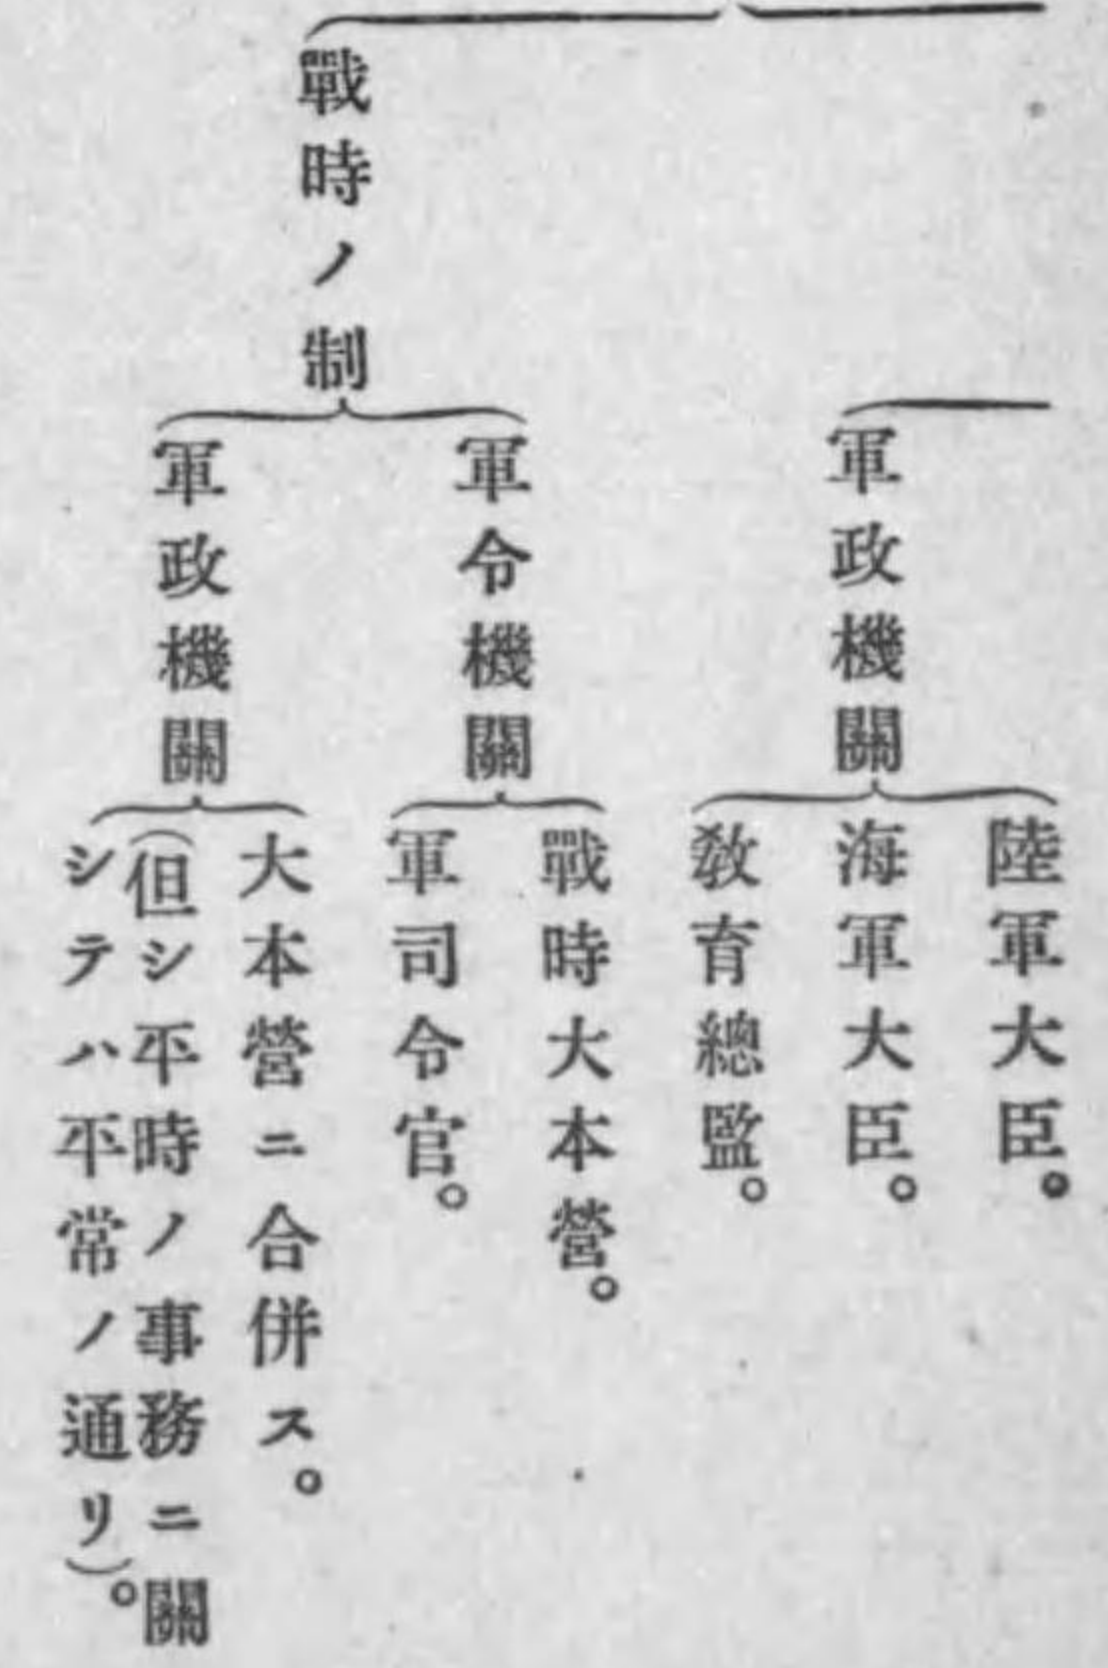 軍政機關
陸軍大臣。
海軍大臣。
敎育總監。
戰時ノ制
軍令機關
戰時大本營。
軍司令官。
軍政機關
大本營ニ合併ス。
(但シ平時ノ事務ニ關
シテハ平常ノ通リ)。